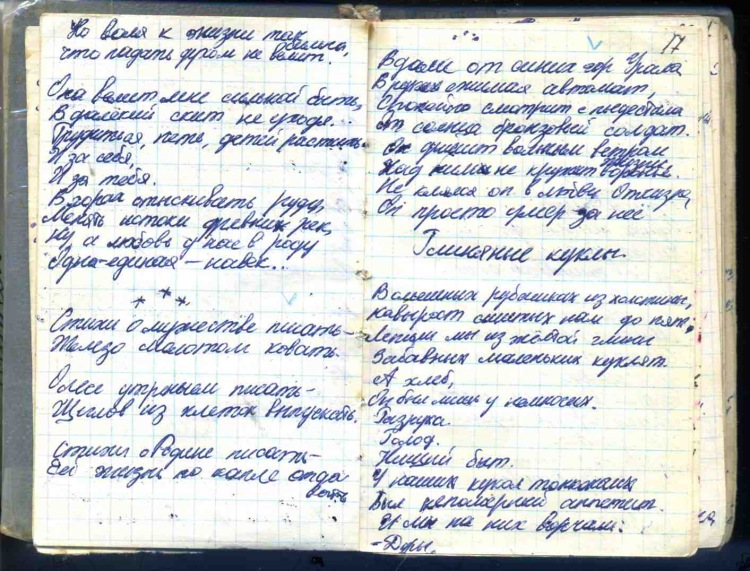 Но воля к жизни так
сильна,
что падать духом не велит.
Она велит мне сильной быть,
В далёкий скит не уходя...
Трудиться, петь, детей растить
И за себя,
И за тебя.
В горах отыскивать руду,
Менять истоки древних рек,
Ну, а любовь у нас в роду
Одна-единая – навек...
* * *
Стихи о мужестве писать –
Железо молотом ковать.
Щеглов из клеток выпускать.
Стихи о Родине писать –
Ей жизнь по капле отда
вать
17
Вдали от синих гор Урала
В руках сжимая автомат,
Спокойно смотрит с пьедестала
От солнца бронзовый солдат.
Он дышит вольным ветром
жизни
Над ним не кружит вороньё.
Не клялся он в любви Отчизне,
Он просто умер за неё
Глиняные куклы.
Вольшиных рубашках из холстины,
Навырост сшитых нам до пят,
Лепили мы из жёлтой глины
Забавных маленьких куклят.
А хлеб,
Он был лишь у колхозных.
Разруха.
Голод.
Нищий быт.
У наших кукол тонкокожих
Был непомерный аппетит.
И мы на них ворчали:
– Дуры.